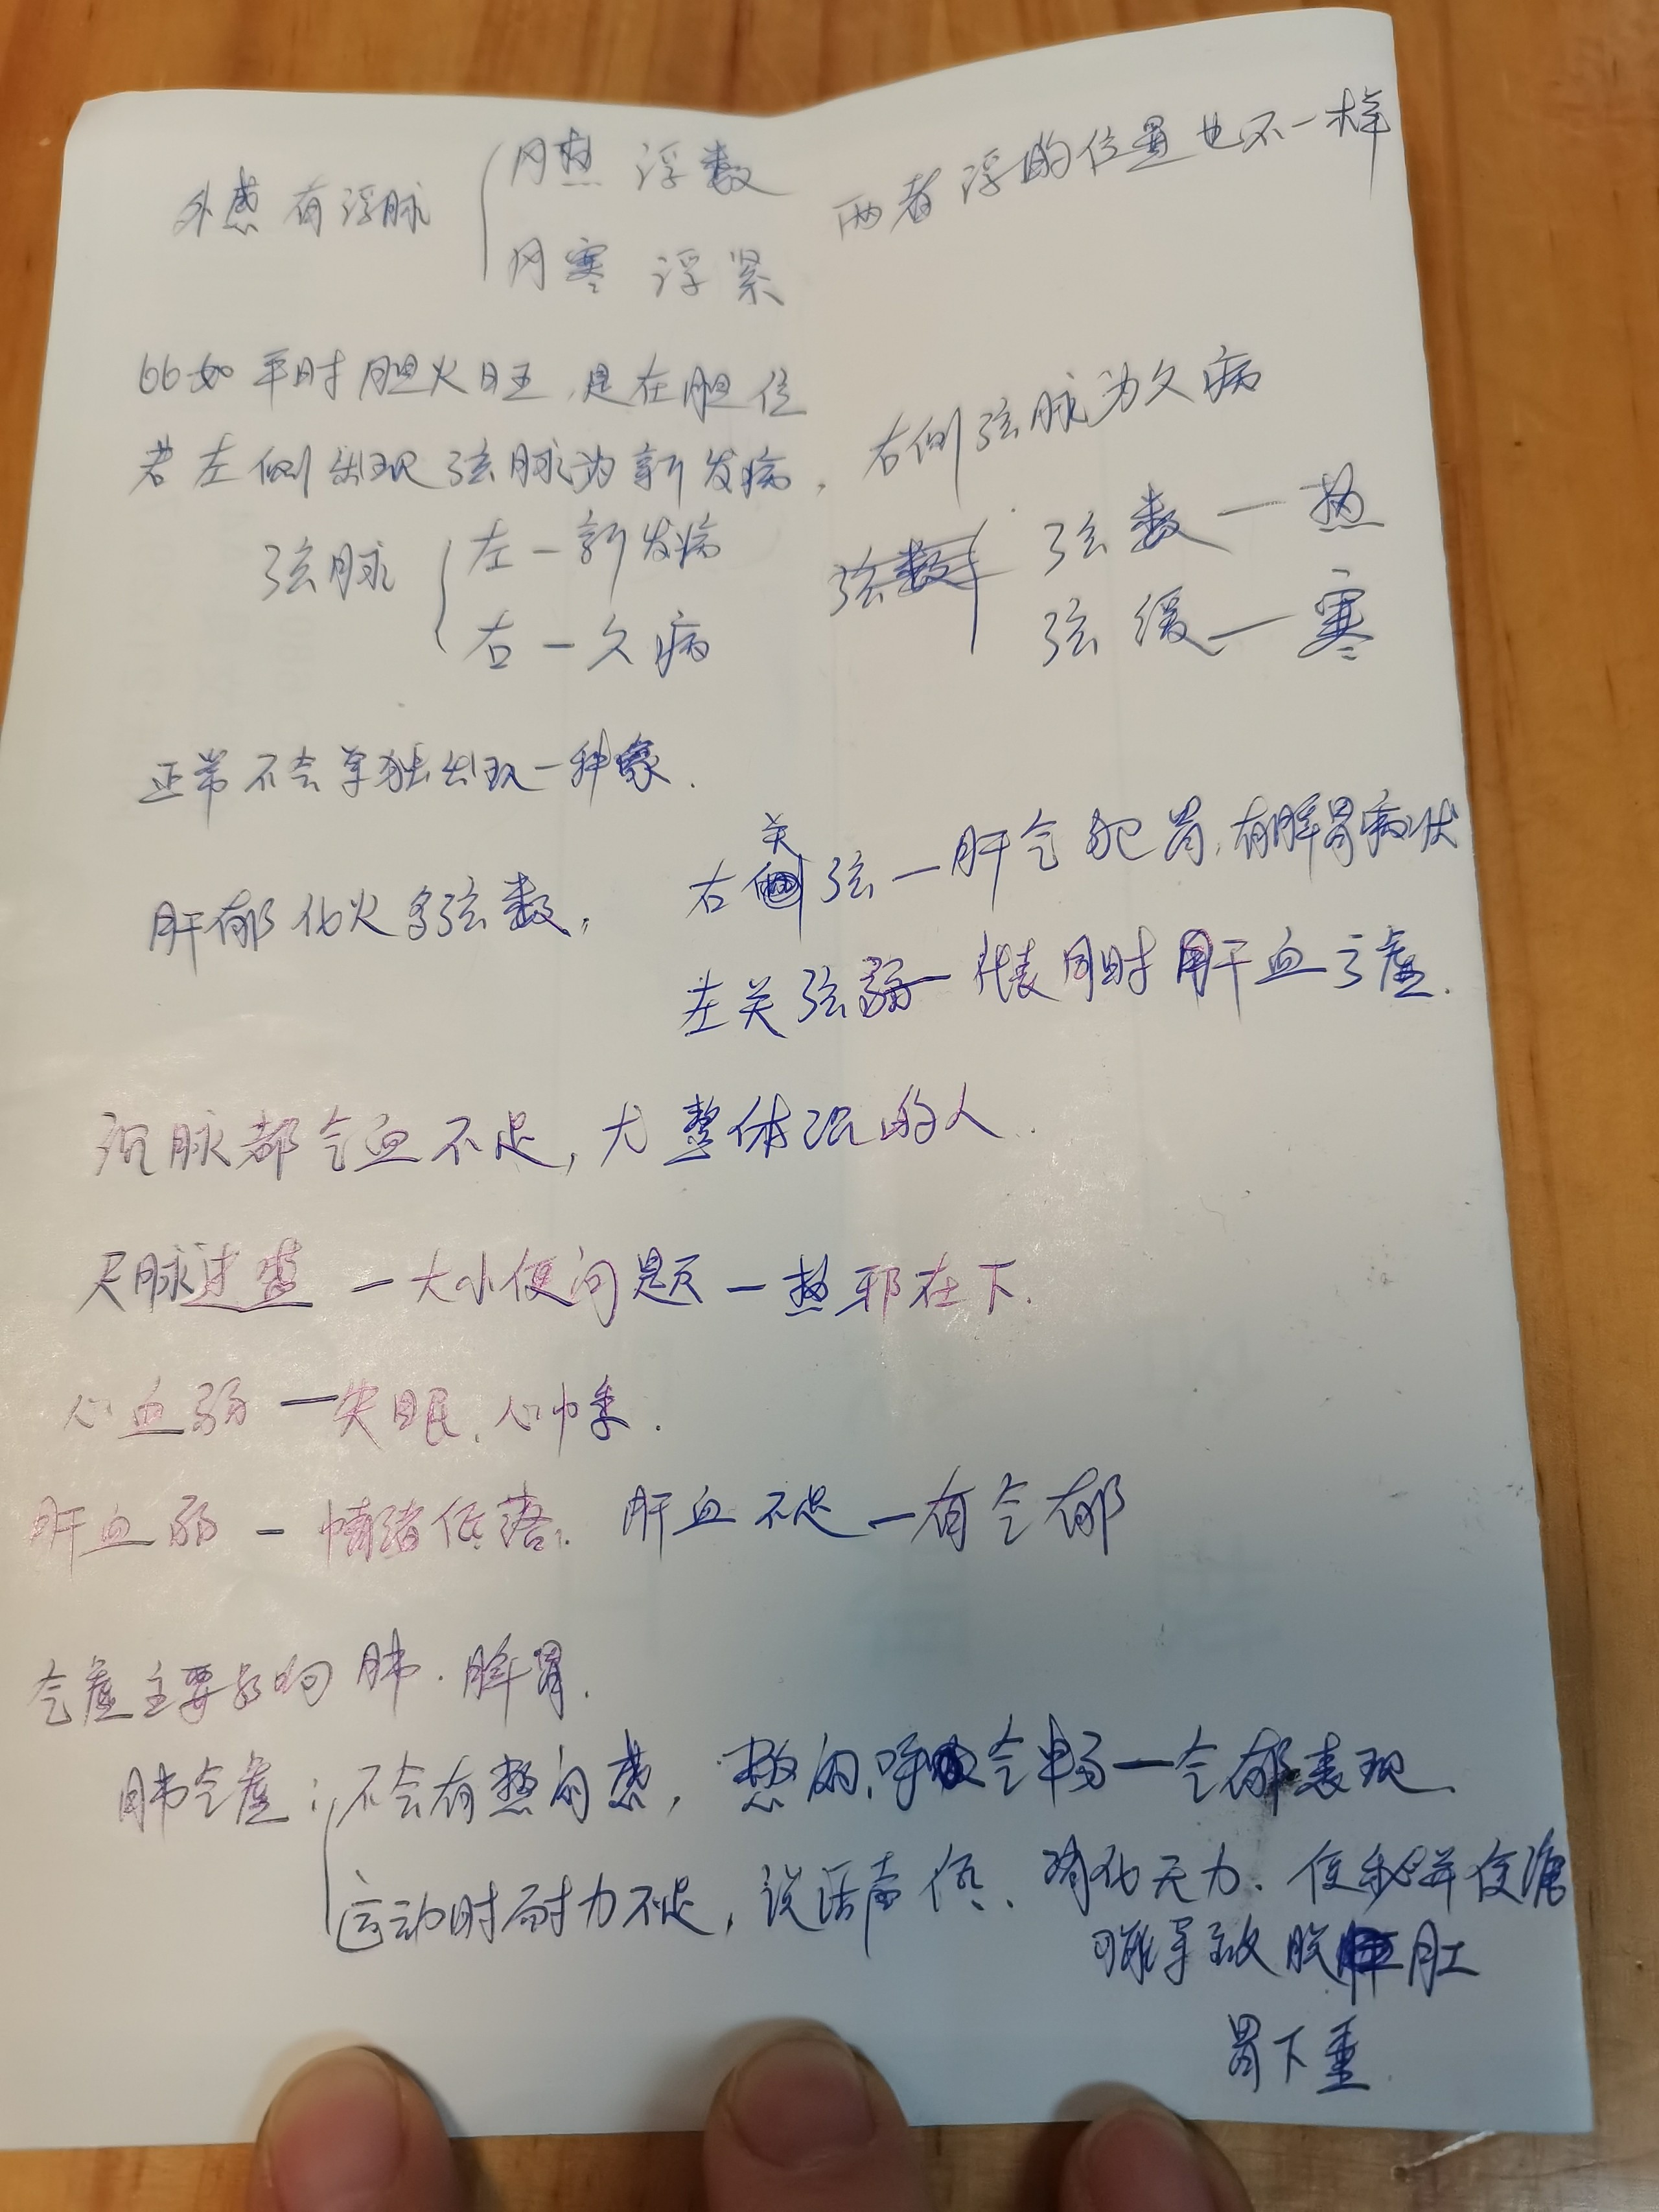 外感有浮脉 风热 浮数 两者浮的位置也不一样
风寒 浮紧
比如平时胆火旺,是在胆位
若左侧出现弦脉为新发病, 右侧弦脉为久病
弦脉 左—新发病 弦数—热
右—久病 弦缓—寒
正常不会单独出现一种象.
肝郁化火多弦数, 右关弦—肝气犯胃,有脾胃症状
左关弦弱—代表同时肝血亏虚.
沉脉都气血不足,尤整体沉的人.
尺脉过盛—大小便问题—热邪在下.
心血弱—失眠、心悸.
肝血弱—情绪低落; 肝血不足—有气郁
气虚主要影响肺.脾胃.
肺气虚: 不会有憋闷感, 憋闷、呼吸气 —气郁表现.
运动时耐力不足,说话声低、消化无力、便秘 便溏
可能导致脱肛
胃下垂.